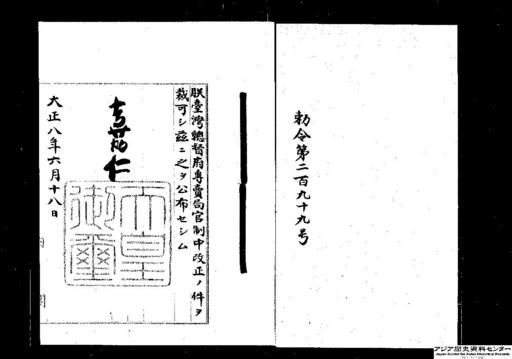 勅令第二百九十九号
朕臺灣總督府專賣局官制中改正ノ件ヲ
裁可シ茲ニ之ヲ公布セシム
嘉仁
天皇御璽
大正八年六月十八日
内閣
アジア歴史資料センター
Japan Center for Asian Historical Records